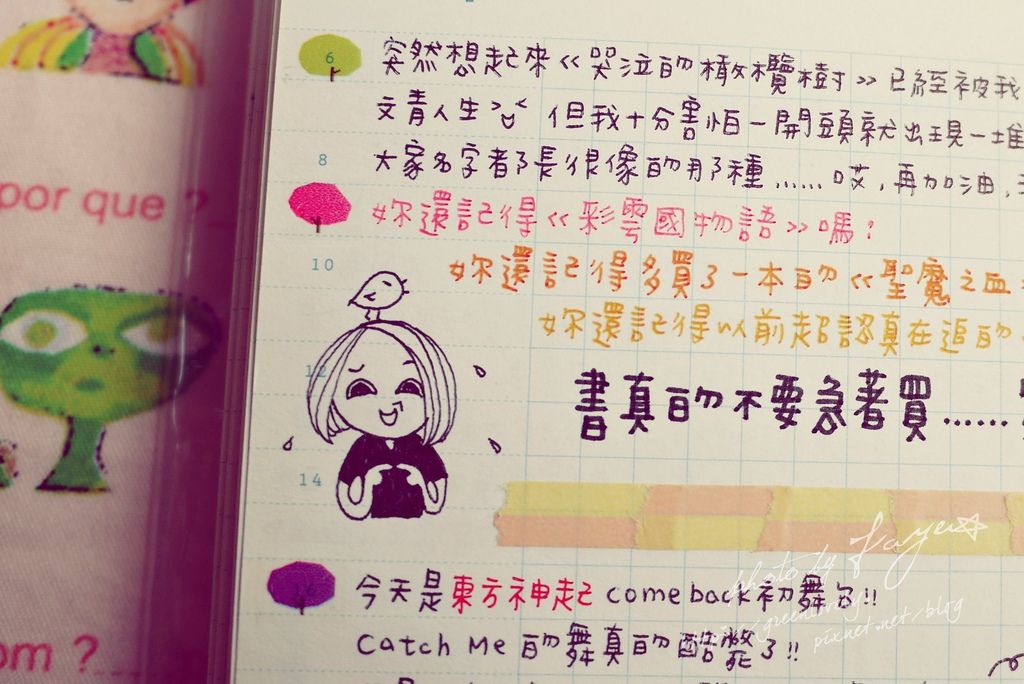 por que ?
om ?
6
突然想起來《哭泣的橄欖樹》已經被我
文青人生 但我十分害怕一開頭就出現一堆
8
大家名字都長很像的那種……哎，再加油，
#妳還記得《彩雲國物語》嗎？
10
#妳還記得多買了一本的《聖魔之血
#妳還記得以前超認真在追的
12
書真的不要急著買……
14
photo by Faye
pixnet.net/blog
今天是東方神起 comeback初舞台!!
Catch Me 的舞真的酷斃了!!